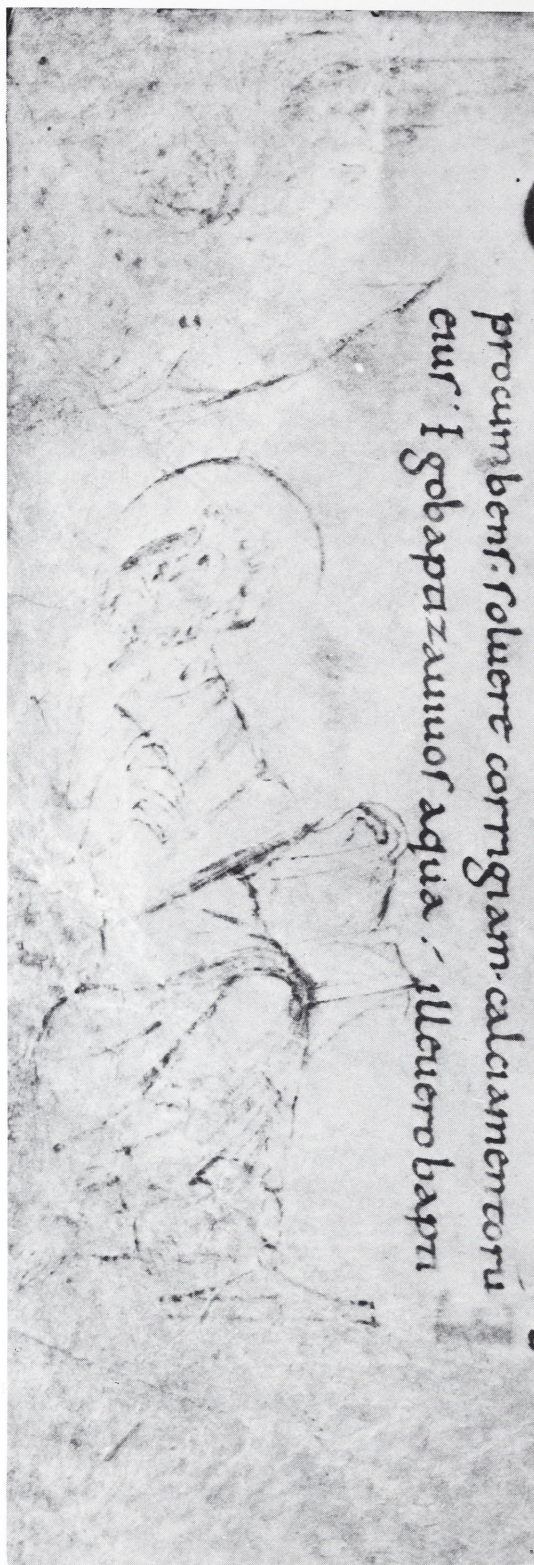 procumbens. soluere corrigiam. calciamentorū
eius. Ego baptizaui uos aqua. ille uero bapti